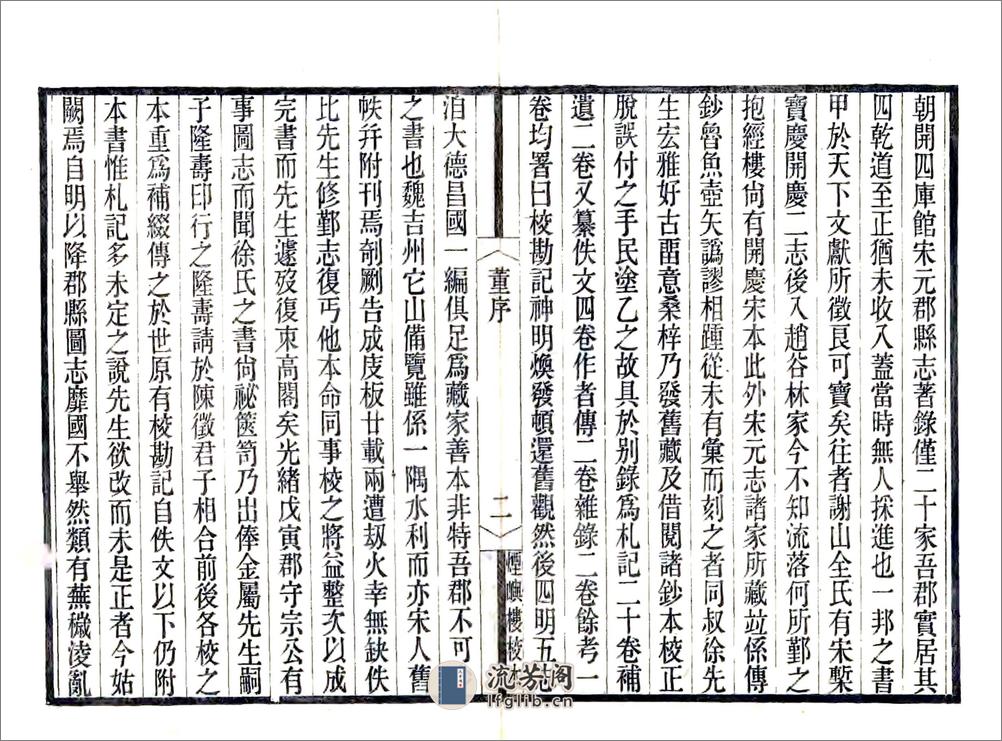 朝開四庫館宋元郡縣志著錄僅二十家吾郡實居其
四乾道至正猶未收入蓋當時無人採進也一邦之書
甲於天下文獻所徵良可寶矣往者謝山全氏有宋槧
寶慶開慶二志後入趙谷林家今不知流落何所鄞之
抱經樓尙有開慶宋本此外宋元志諸家所藏竝係傳
鈔魯魚壺矢譌謬相踵從未有彙而刻之者同叔徐先
生宏雅好古畱意桑梓乃發舊藏及借閱諸鈔本校正
脫誤付之手民塗乙之故具於别錄爲札記二十卷補
遺二卷又纂佚文四卷作者傳二卷雜錄二卷餘考一
卷均署曰校勘記神明煥發頓還舊觀然後四明五志
董序
二
煙嶼樓校
洎大德昌國一編俱足爲藏家善本非特吾郡不可少
之書也魏吉州它山備覽雖係一隅水利而亦宋人舊
帙幷附刊焉剞劂告成庋板廿載兩遭刼火幸無缺佚
比先生修鄞志復丐他本命同事校之將益整次以成
完書而先生遽歿復束高閣矣光緒戊寅郡守宗公有
事圖志而聞徐氏之書尙祕篋笥乃出俸金屬先生嗣
子隆壽印行之隆壽請於陳徵君子相合前後各校之
本重爲補綴傳之於世原有校勘記自佚文以下仍附
本書惟札記多未定之說先生欲改而未是正者今姑
闕焉自明以降郡縣圖志靡國不舉然類有蕪穢淩亂
流芳阁
lfglib.cn